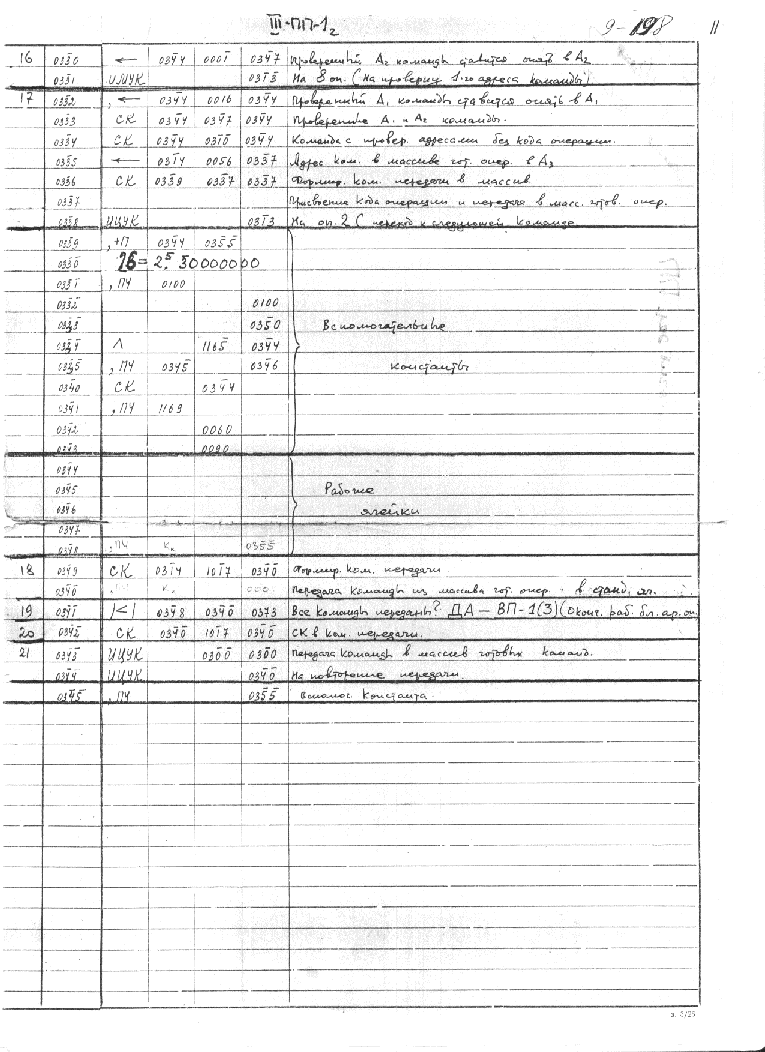 III-ПП-1₂ 9-198 11
16 0330 ← 0344 0001 0347 Проверенный А₂ команды ставится опять в А₂
0331 ИЦУК 0313 На 8 оп. (на проверку 1-го адреса команды)
17 0332 , ← 0344 0010 0344 Проверенный А₁ команды ставится опять в А₁
0333 СК 0344 0347 0344 Проверенные А₁ и А₂ команды.
0334 СК 0344 0310 0344 Команда с провер. адресами без кода операции.
0335 ← 0314 0056 0337 Адрес ком. в массиве гот. опер. в А₃
0336 СК 0339 0337 0337 Формир. ком. передачи в массив
0337 Присвоение кода операции и передача в масс. готов. опер.
0338 ИЦУК 0313 На оп. 2 (переход к следующей команде
0339 , +П 0344 0355
0330 16 = 2⁵ 30000000
0331 , ПЧ 0100
0332 0100
0333 0350 Вспомогательные
0334 Λ 1165 0344
0335 , ПЧ 0345 0346 константы
0340 СК 0344
0341 , ПЧ 1169
0342 0060
0343 0090
0344
0345 Рабочие
0346 ячейки
0347
0348 , ПЧ Кк 0355
18 0349 СК 0314 1017 0340 Формир. ком. передачи.
0340 Передача команды из массива гот. опер. в станд. яч.
19 0341 |<| 0348 0340 0373 Все команды переданы? ДА — ВП-1(3) (оконч. раб. бл. ар. оп.
20 0342 СК 0340 1017 0340 СК в ком. передачи.
21 0343 ИЦУК 0300 0300 Передача команд в массив готовых команд.
0344 ИЦУК 0340 На повторение передачи.
0345 , ПЧ 0355 Вспомог. константа.